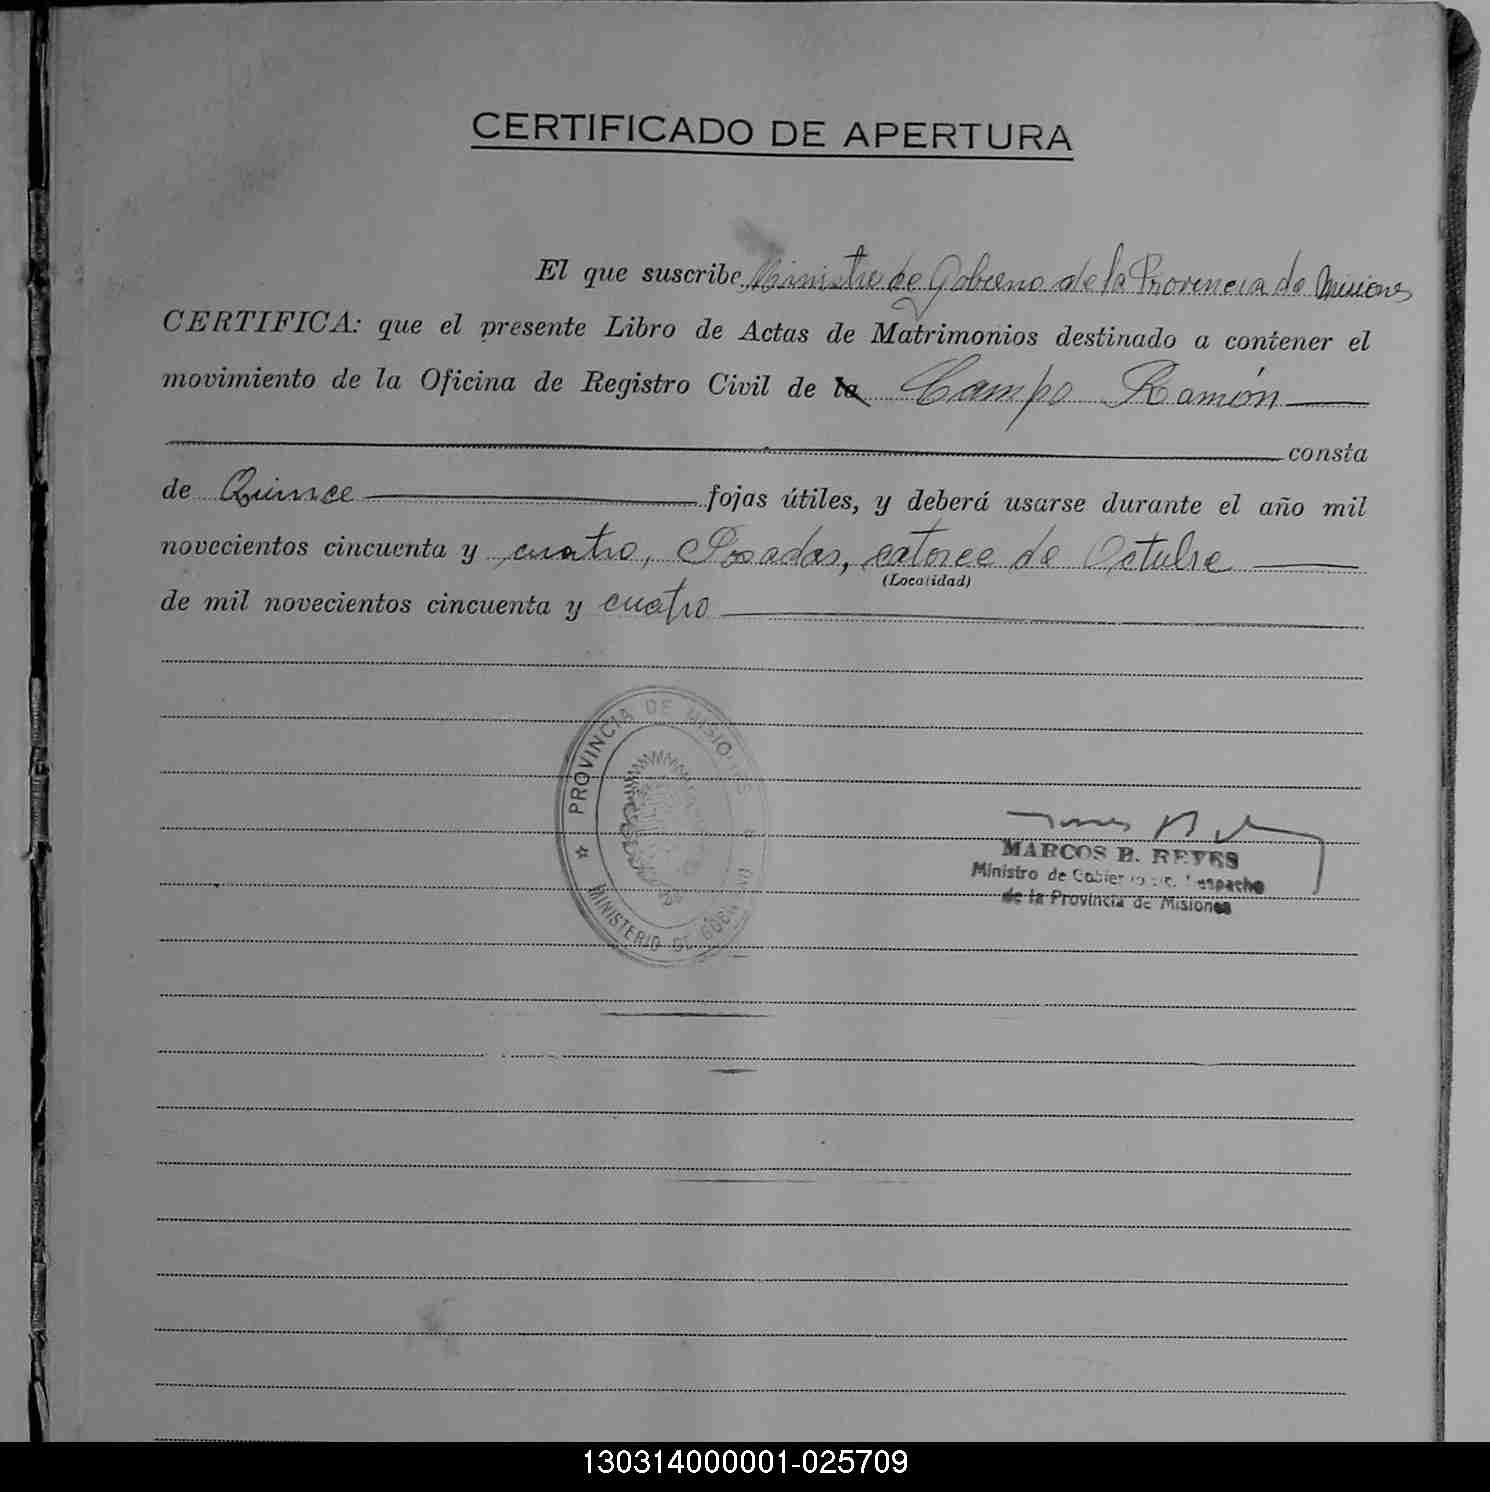 CERTIFICADO DE APERTURA
El que suscribe Ministro de Gobierno de la Provincia de Misiones
CERTIFICA: que el presente Libro de Actas de Matrimonios destinado a contener el
movimiento de la Oficina de Registro Civil de la Campo Ramón
consta
de Quince fojas útiles, y deberá usarse durante el año mil
novecientos cincuenta y cuatro, Posadas, catorce de Octubre
(Localidad)
de mil novecientos cincuenta y cuatro
PROVINCIA DE MISIONES
MINISTERIO DE GOBIERNO
MARCOS B. REYES
Ministro de Gobierno Despacho
de la Provincia de Misiones
130314000001-025709